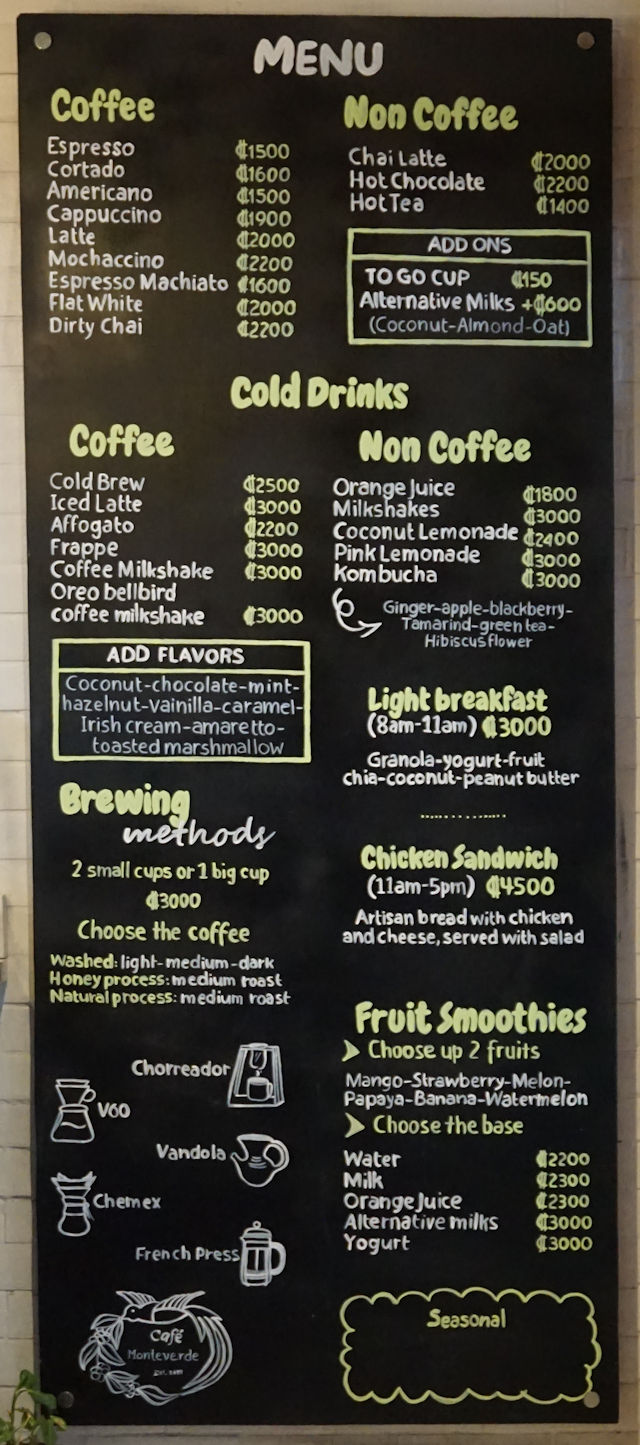 MENU
Coffee
Espresso ₡1500
Cortado ₡1600
Americano ₡1500
Cappuccino ₡1900
Latte ₡2000
Mochaccino ₡2200
Espresso Machiato ₡1600
Flat White ₡2000
Dirty Chai ₡2200
Non Coffee
Chai Latte ₡2000
Hot Chocolate ₡2200
Hot Tea ₡1400
ADD ONS
TO GO CUP ₡150
Alternative Milks +₡600
(Coconut-Almond-Oat)
Cold Drinks
Coffee
Cold Brew ₡2500
Iced Latte ₡3000
Affogato ₡2200
Frappe ₡3000
Coffee Milkshake ₡3000
Oreo bellbird
coffee milkshake ₡3000
ADD FLAVORS
Coconut-chocolate-mint-
hazelnut-vainilla-caramel-
Irish cream-amaretto-
toasted marshmallow
Non Coffee
Orange Juice ₡1800
Milkshakes ₡3000
Coconut Lemonade ₡2400
Pink Lemonade ₡3000
Kombucha ₡3000
Ginger-apple-blackberry-
Tamarind-green tea-
Hibiscus flower
Brewing
methods
2 small cups or 1 big cup
₡3000
Choose the coffee
Washed: light-medium-dark
Honey process: medium roast
Natural process: medium roast
Chorreador
V60
Vandola
Chemex
French Press
Café
Monteverde
Light breakfast
(8am-11am) ₡3000
Granola-yogurt-fruit
chia-coconut-peanut butter
Chicken Sandwich
(11am-5pm) ₡4500
Artisan bread with chicken
and cheese, served with salad
Fruit Smoothies
Choose up 2 fruits
Mango-Strawberry-Melon-
Papaya-Banana-Watermelon
Choose the base
Water ₡2200
Milk ₡2300
Orange Juice ₡2300
Alternative milks ₡3000
Yogurt ₡3000
Seasonal